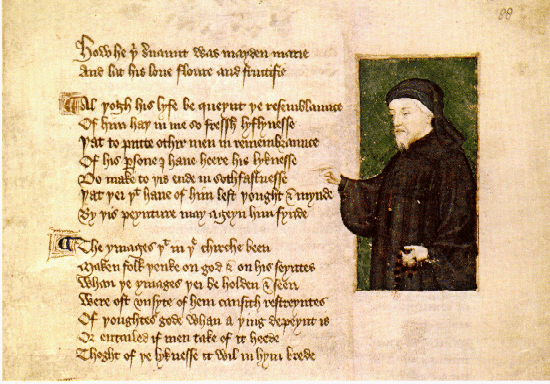 88
How he þⁱ seruaunt was mayden marie
And lat his loue floure and fructifie
Al þogh his lyfe be queynt þe resemblaunce
Of him haþ in me so fressh lyflynesse
Þat to putte othir men in remembraunce
Of his ꝑsone I haue heere his lyknesse
Do make to þis ende in sothfastnesse
Þat þei þᵗ haue of him left þought & mynde
By þis peynture may ageyn him fynde
The ymages þᵗ in þᵉ chirche been
Maken folk þenke on god & on his seyntes
Whan þe ymages þei beholden & seen
Were oft vnsyte of hem causith restreyntes
Of þoughtes gode whan a þing depeynt is
Or entailed if men take of it heede
Thoght of þe lyknesse it wil in hym brede